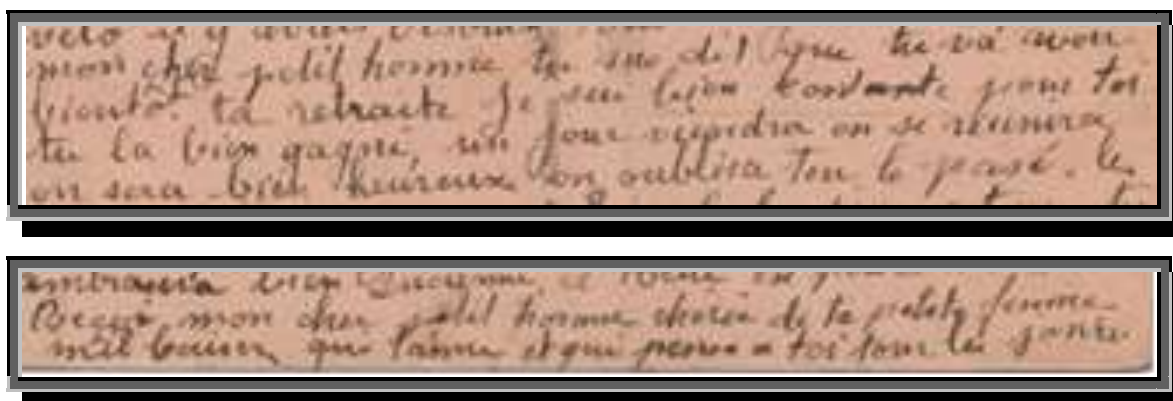 mon cher petit homme tu me dit que tu va avoir
bientot ta retraite Je sui bien contante pour toi
tu la bien gagné, un jour viendra on se réunira
on sera bien heureux on oublira tou le passé. le
embrassera bien Lucienne et René
Recoi mon cher petit homme cherie de ta petite femme
mil baiser qui t'aime et qui pense a toi tous les jours